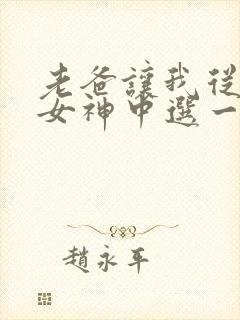 老爸讓我從
女神中選一
趙永平